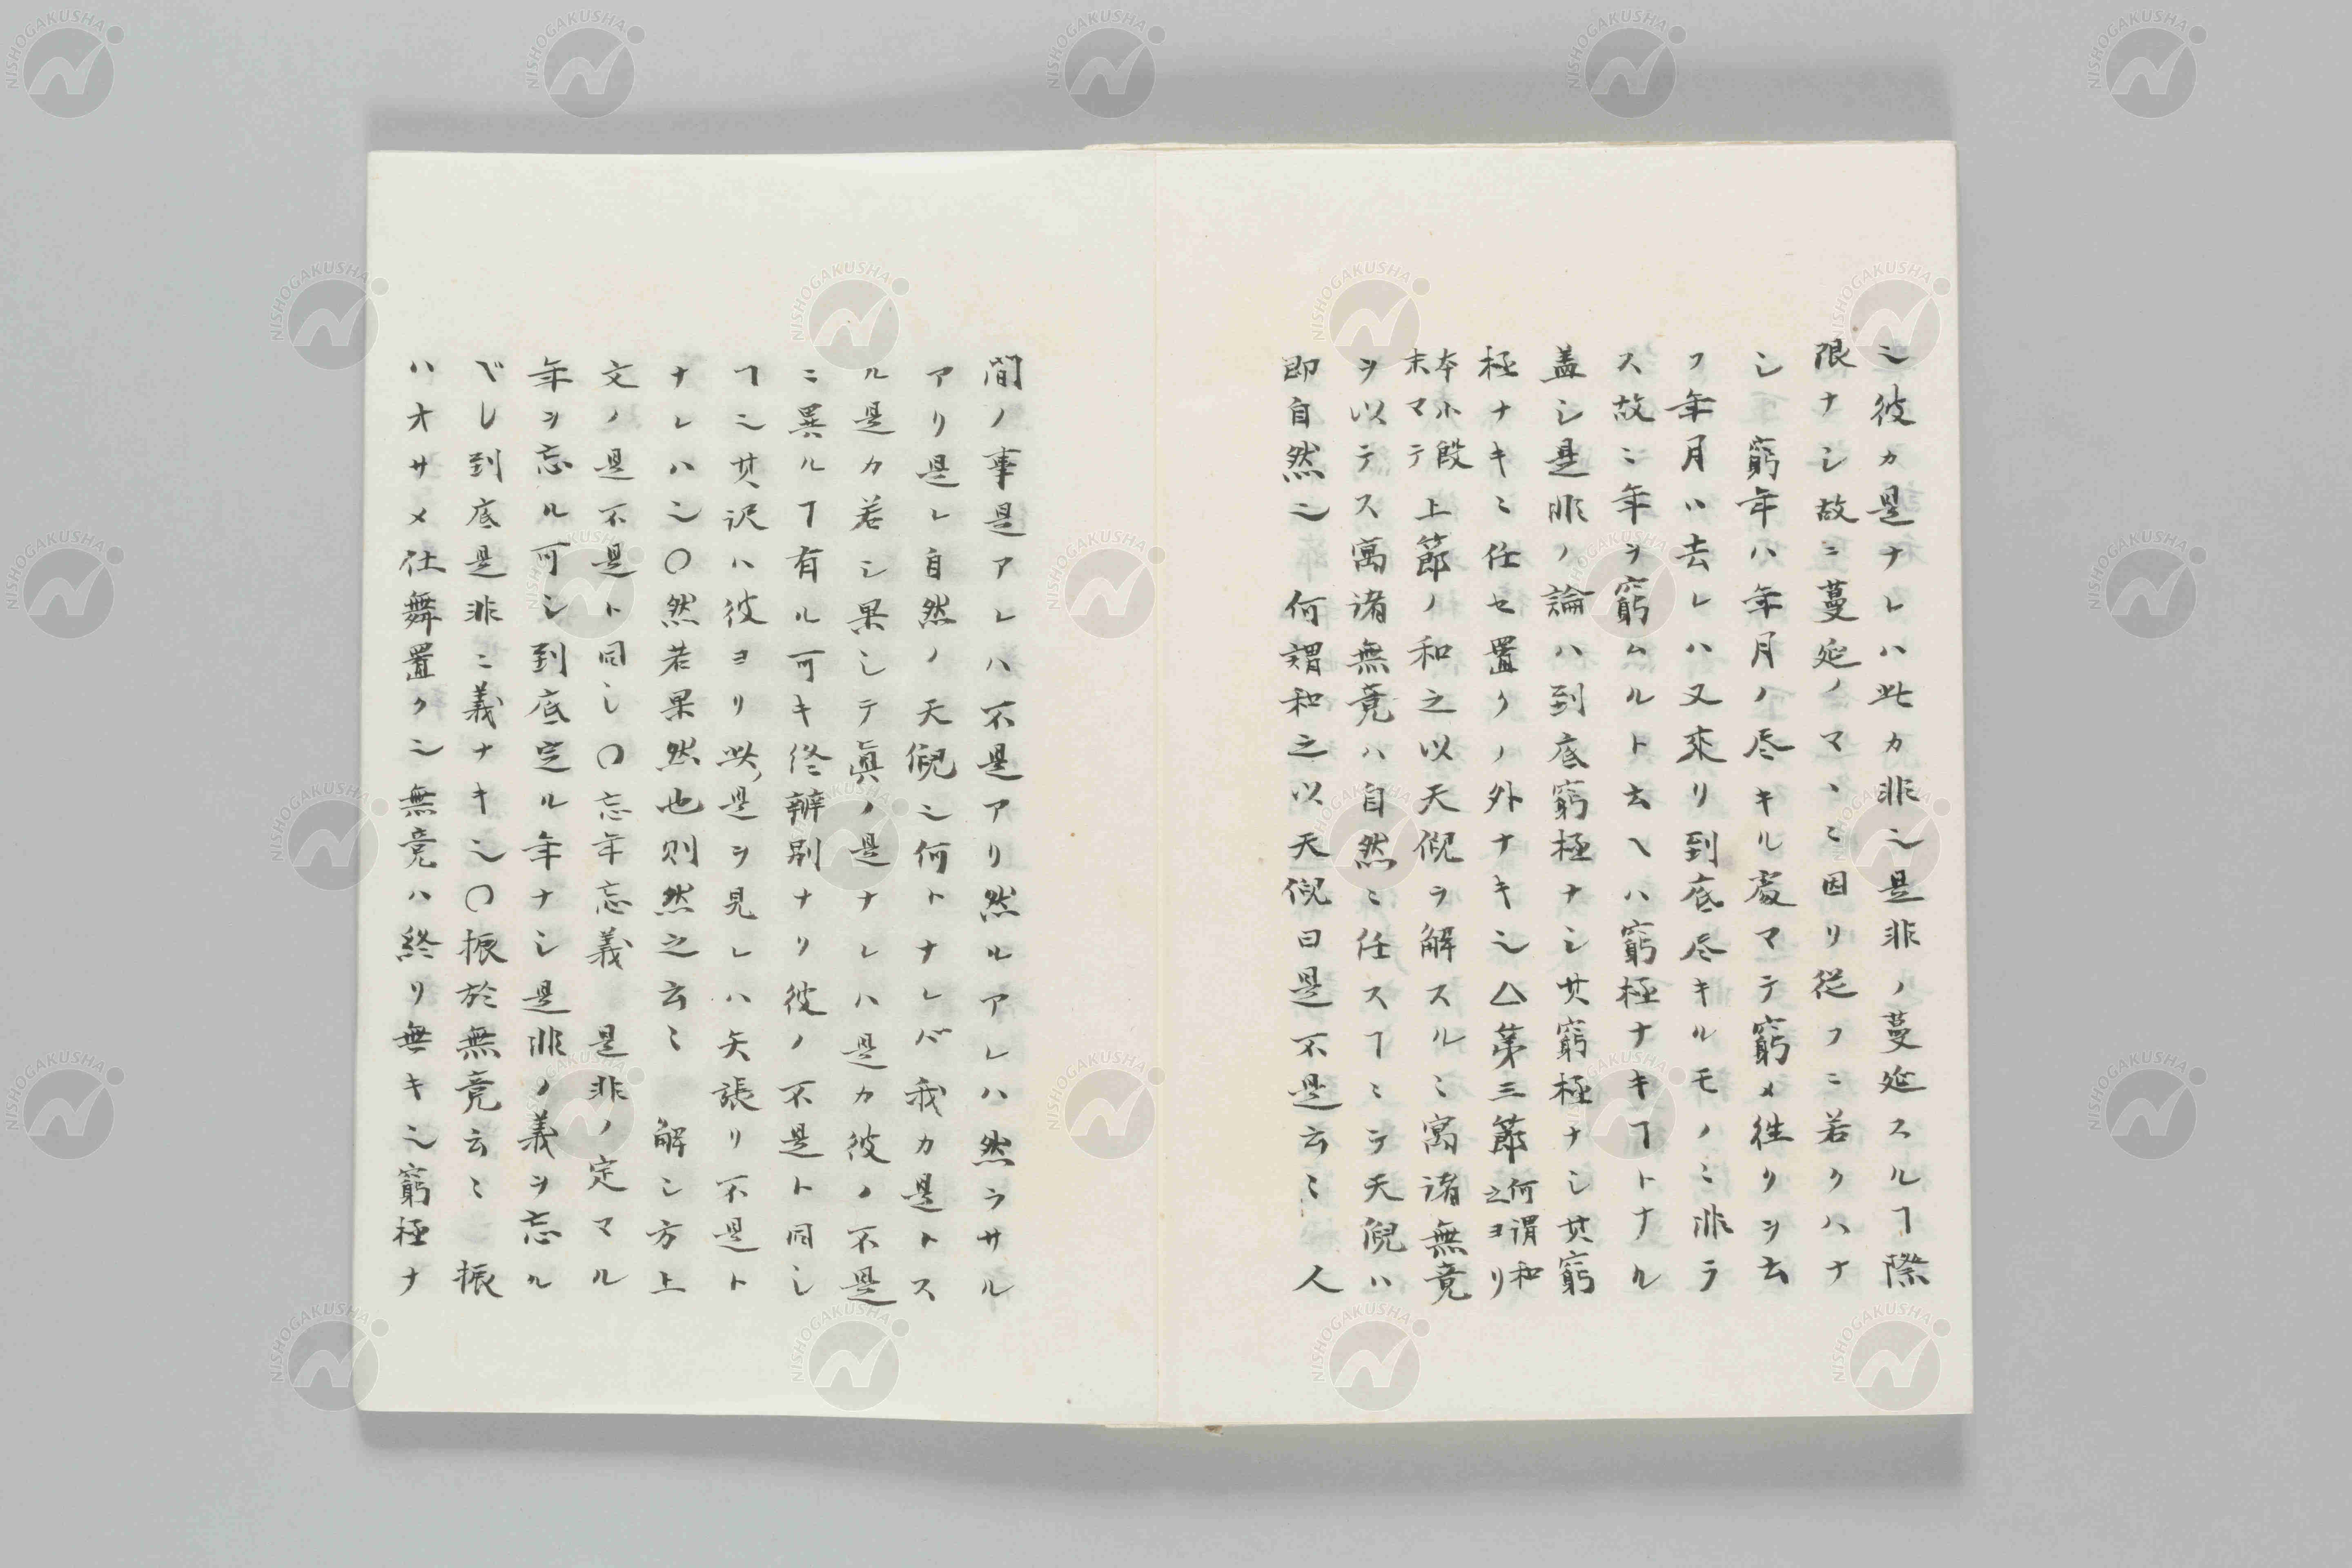 𬼂彼カ是ナレハ此カ非𬼂是非ノ蔓延スルヿ際
限ナシ故ニ蔓延ノマヽニ因リ従フニ若クハナ
シ 窮年ハ年月ノ尽キル處マテ窮メ徃リヲ云
フ年月ハ去レハ又來リ到底尽キルモノニ非ラ
ス故ニ年ヲ窮ムルト云ヘハ窮極ナキヿトナル
盖シ是非ノ論ハ到底窮極ナシ其窮極ナシ其窮
極ナキニ任セ置クノ外ナキ𬼂△第三節何謂和之ヨリ
本小段末マテ 上節ノ和之以天倪ヲ解スルニ寓諸無竟
ヲ以テス寓諸無竟ハ自然ニ任スヿニテ天倪ハ
即自然𬼂 何謂和之以天倪曰是不是云〻 人
間ノ事是アレハ不是アリ然ルアレハ然ラサル
アリ是レ自然ノ天倪𬼂何トナレバ我カ是トス
ル是カ若シ果シテ眞ノ是ナレハ是カ彼ノ不是
ニ異ルヿ有ル可キ辨別ナリ彼ノ不是ト同シ
ヿ𬼂其訳ハ彼ヨリ此是ヲ見レハ矢張リ不是ト
ナレハ𬼂〇然若果然也則然之云〻 解シ方上
文ノ是不是ト同シ〇忘年忘義 是非ノ定マル
年ヲ忘ル可シ到底定ル年ナシ是非ノ義ヲ忘ル
ベシ到底是非ニ義ナキ𬼂〇振於無竟云〻 振
ハオサメ仕舞置ク𬼂無竟ハ終リ無キ𬼂窮極ナ